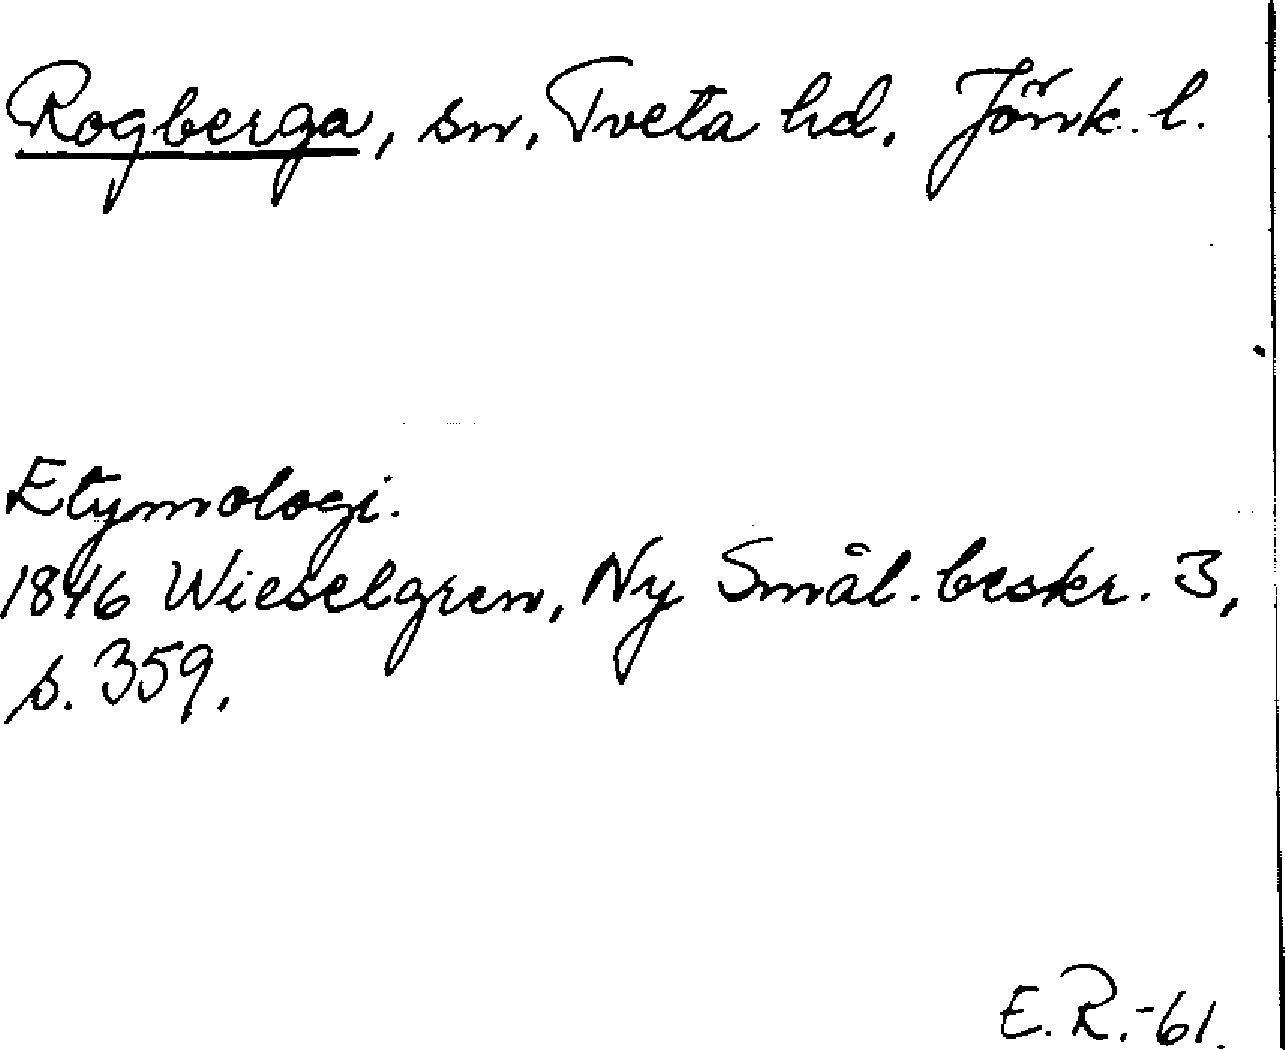 Rogberga, sn, Tveta hd, Jönk. l.
Etymologi.
1846 Wieselgren, Ny Smål. beskr. 3,
s. 359.
E. R. -61.